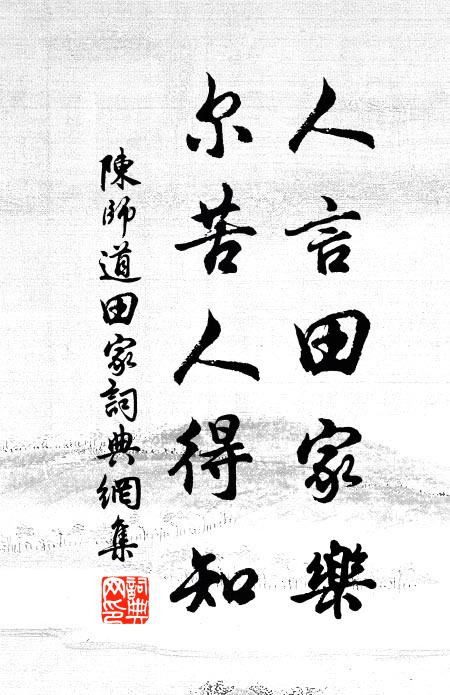 人言田家樂
尔苦人得知
陳師道田家詞典網集
詞典網印